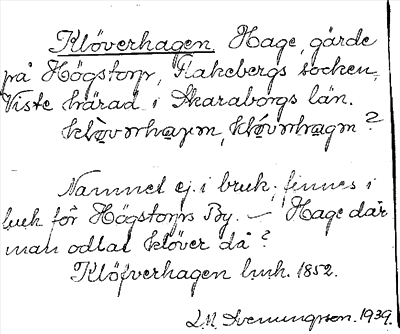 Klöverhagen. Hage, gärde
på Högstorp, Flakebergs socken,
Viste härad i Skaraborgs län.
Namnet ej i bruk; finnes i
luck för Högstorps By. — Hage där
man odlat klöver då?
Klöfverhagen luck. 1852.
L.M. Svenungsson. 1939.